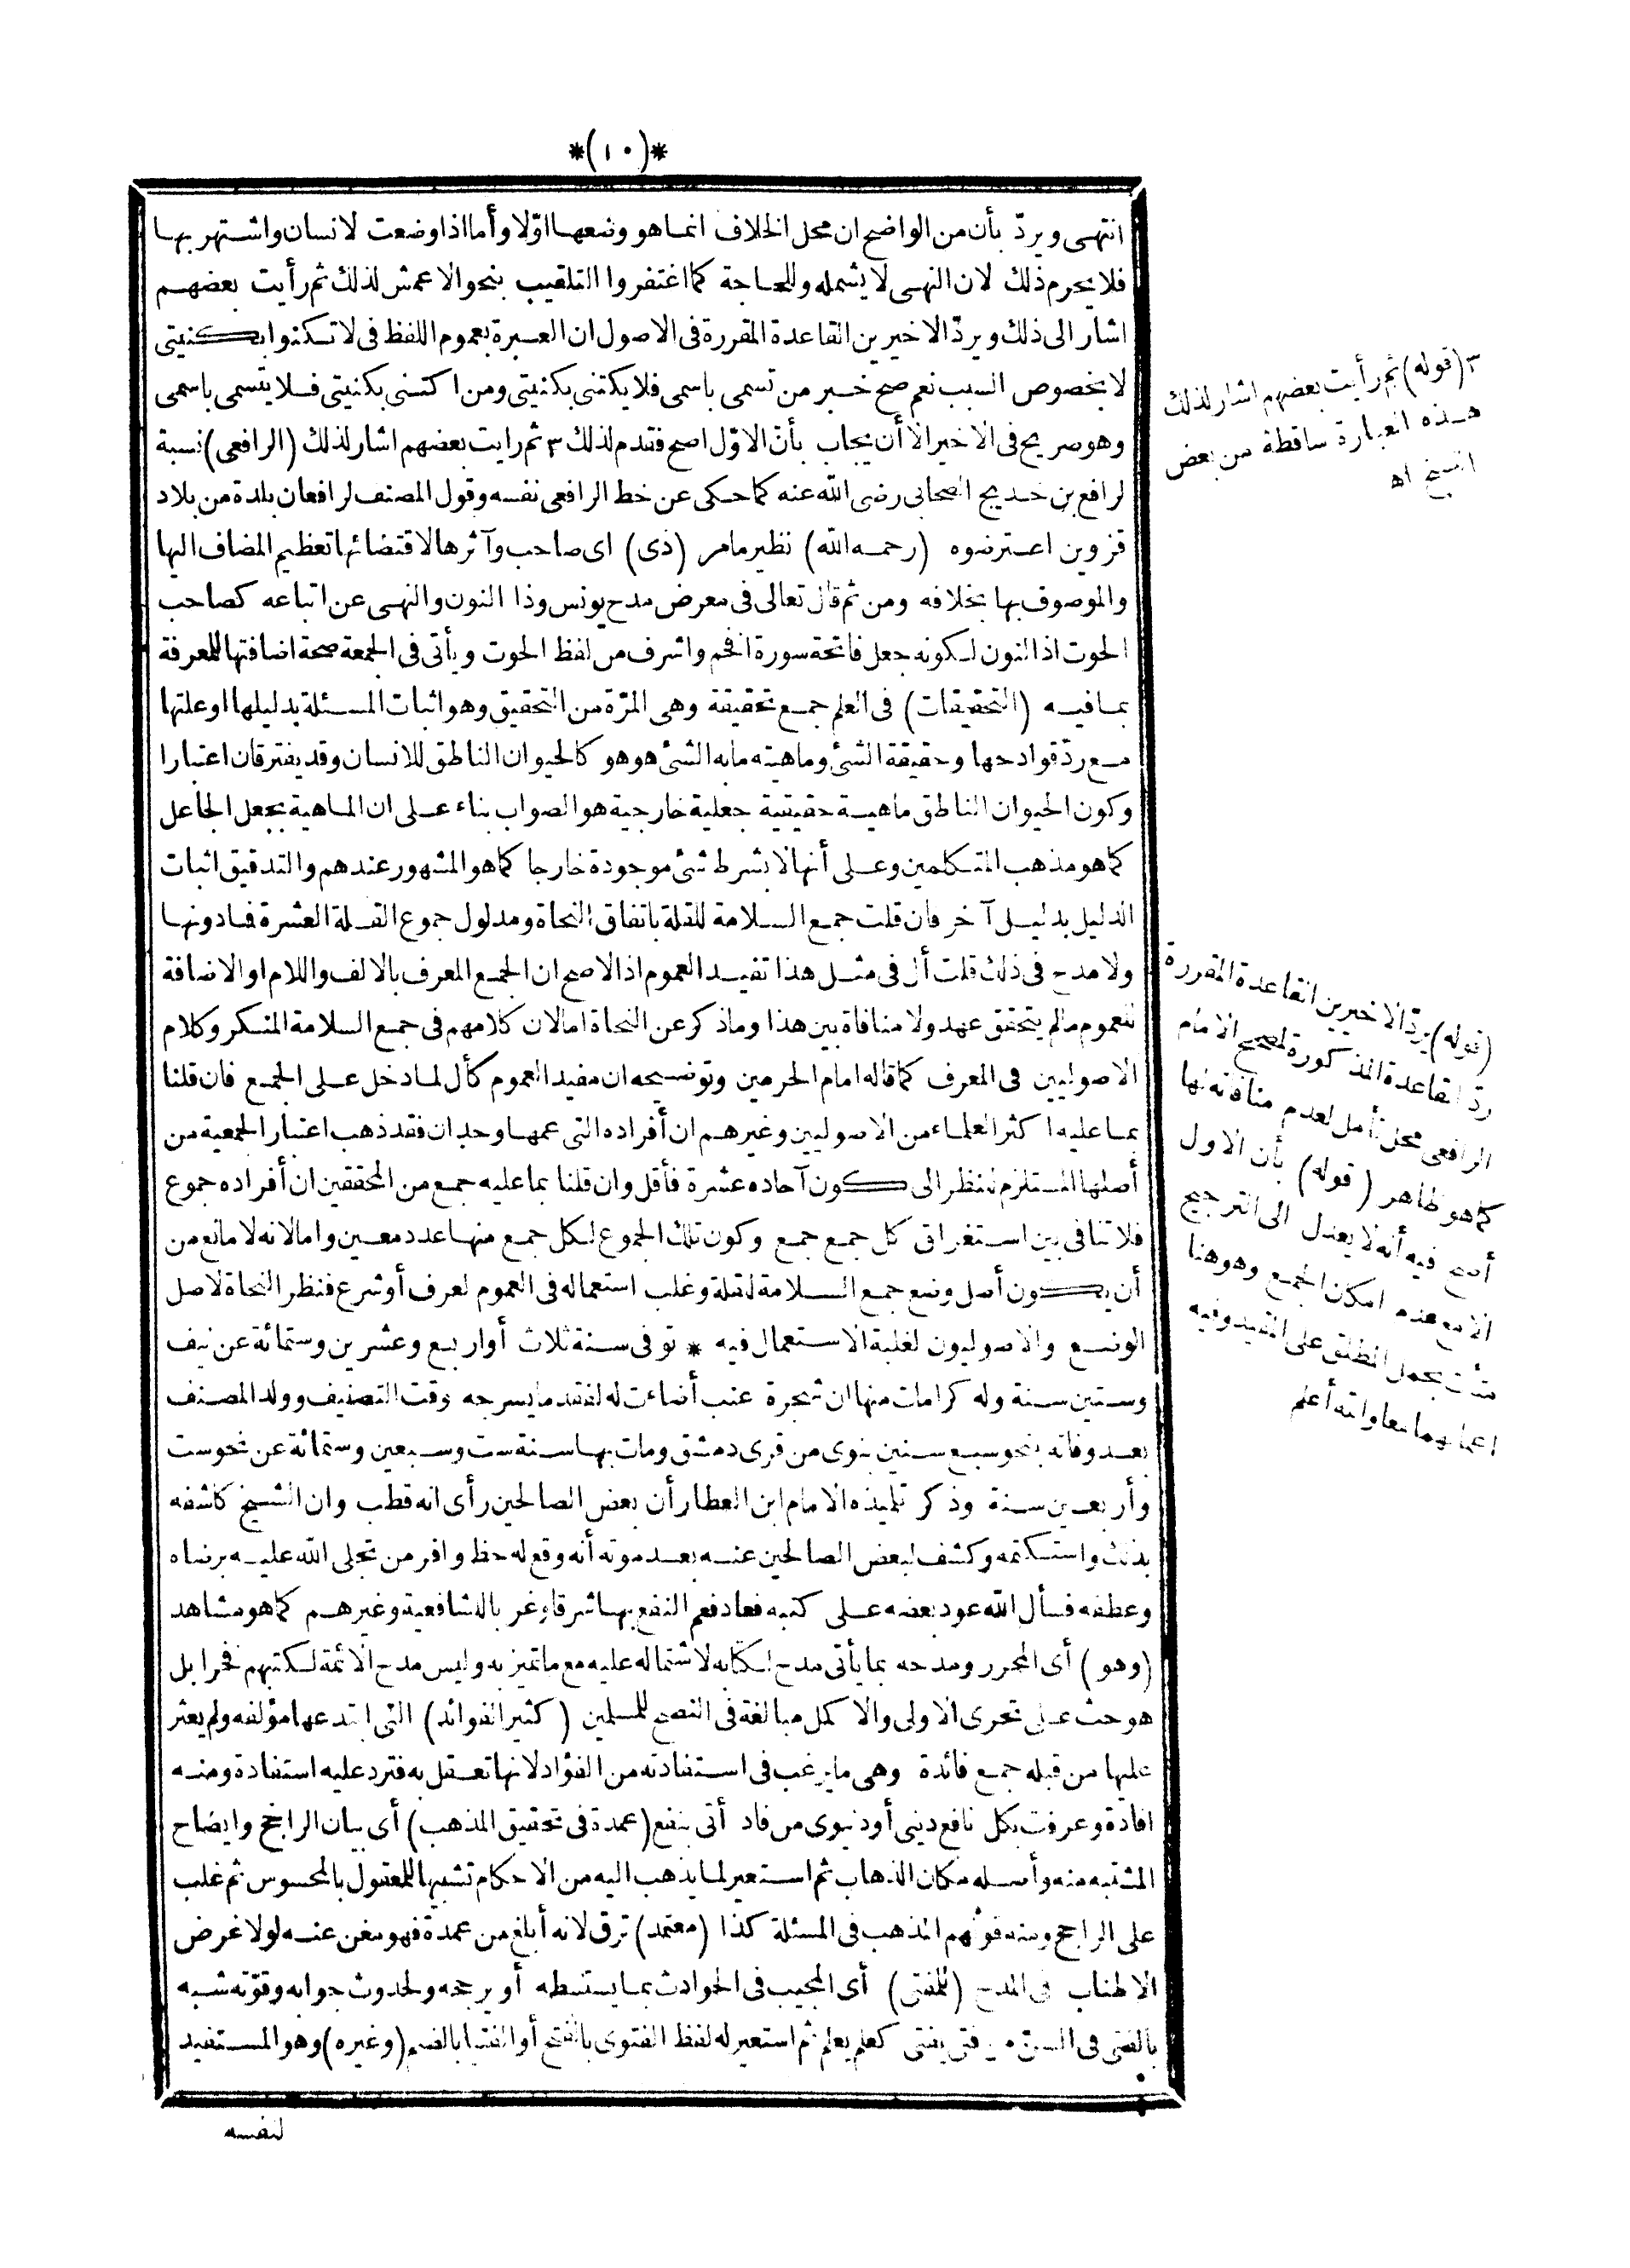 *(١٠)*
انتهى ويردّ بأن من الواضح ان محل الخلاف انما هو وضعها اوّلا وأما اذا وضعت لانسان واشتهر بها
فلا يحرم ذلك لان النهى لا يشمله وللحاجة كما اغتفروا التلقيب بنحو الاعمش لذلك ثم رأيت بعضهم
اشار الى ذلك ويردّ الاخيرين القاعدة المقررة فى الاصول ان العبرة بعموم اللفظ فى لا تكنوا بكنيتى
لا بخصوص السبب نعم صح خبر من تسمى باسمى فلا يكتنى بكنيتى ومن اكتنى بكنيتى فلا يتسمى باسمى
وهو صريح فى الاخير الا أن يجاب بأن الاوّل اصح فقدم لذلك ٣ ثم رايت بعضهم اشار لذلك (الرافعى) نسبة
لرافع بن خديج الصحابى رضى الله عنه كما حكى عن خط الرافعى نفسه وقول المصنف لرافعان بلدة من بلاد
قزوين اعترضوه (رحمه الله) نظير ما مر (ذى) اى صاحب وآثرها لاقتضائها تعظيم المضاف اليها
والموصوف بها بخلافه ومن ثم قال تعالى فى معرض مدح يونس وذا النون والنهى عن اتباعه كصاحب
الحوت اذ النون لكونه جعل فاتحة سورة افخم واشرف من لفظ الحوت ويأتى فى الجمعة صحة اضافتها للمعرفة
بما فيه (التحقيقات) فى العلم جمع تحقيقة وهى المرّة من التحقيق وهو اثبات المسئلة بدليلها او علتها
مع ردّ قوادحها وحقيقة الشئ وماهيته ما به الشئ هو هو كالحيوان الناطق للانسان وقد يفترقان اعتبارا
وكون الحيوان الناطق ماهية حقيقية جعلية خارجية هو الصواب بناء على ان الماهية بجعل الجاعل
كما هو مذهب المتكلمين وعلى أنها لا بشرط شئ موجودة خارجا كما هو المشهور عندهم والتدقيق اثبات
الدليل بدليل آخر فان قلت جمع السلامة للقلة باتفاق النحاة ومدلول جموع القلة العشرة فما دونها
ولا مدح فى ذلك قلت أل فى مثل هذا تفيد العموم اذ الاصح ان الجمع المعرف بالالف واللام او الاضافة
للعموم ما لم يتحقق عهد ولا منافاة بين هذا وما ذكر عن النحاة اما لان كلامهم فى جمع السلامة المنكر وكلام
الاصوليين فى المعرف كما قاله امام الحرمين وتوضيحه ان مفيد العموم كأل لما دخل على الجمع فان قلنا
بما عليه اكثر العلماء من الاصوليين وغيرهم ان أفراده التى عمها وحدان فقد ذهب اعتبار الجمعية من
أصلها المستلزم للنظر الى كون آحاده عشرة فأقل وان قلنا بما عليه جمع من المحققين ان أفراده جموع
فلا تنافى بين استغراق كل جمع جمع وكون تلك الجموع لكل جمع منها عدد معين واما لانه لا مانع من
أن يكون أصل وضع جمع السلامة للقلة وغلب استعماله فى العموم لعرف أو شرع فنظر النحاة لاصل
الوضع والاصوليون لغلبة الاستعمال فيه * توفى سنة ثلاث أو اربع وعشرين وستمائة عن نيف
وستين سنة وله كرامات منها ان شجرة عنب أضاءت له لفقد ما يسرجه وقت التصنيف وولد المصنف
بعد وفاته بنحو سبع سنين بنوى من قرى دمشق ومات بها سنة ست وسبعين وستمائة عن نحو ست
وأربعين سنة وذكر تلميذه الامام ابن العطار أن بعض الصالحين رأى انه قطب وان الشيخ كاشفه
بذلك واستكتمه وكشف لبعض الصالحين عنه بعد موته أنه وقع له حظ وافر من تجلى الله عليه برضاه
وعطفه فسأل الله عود بعضه على كتبه فعاد فعم النفع بها شرقا وغربا للشافعية وغيرهم كما هو مشاهد
(وهو) أى المحرر ومدحه بما يأتى مدح لكتابه لاشتماله عليه مع ما تميز به وليس مدح الائمة لكتبهم فخرا بل
هو حث على تحرى الاولى والاكمل مبالغة فى النصح للمسلمين (كثير الفوائد) التى ابتدعها مؤلفه ولم يعثر
عليها من قبله جمع فائدة وهى ما يرغب فى استفادته من الفؤاد لانها تعقل به فترد عليه استفادة ومنه
افادة وعرفت بكل نافع دينى أو دنيوى من فاد أتى بنفع (عمدة فى تحقيق المذهب) أى بيان الراجح وايضاح
المشتبه منه وأصله مكان الذهاب ثم استعير لما يذهب اليه من الاحكام تشبيها للمعقول بالمحسوس ثم غلب
على الراجح ومنه قولهم المذهب فى المسئلة كذا (معتمد) ترق لانه أبلغ من عمدة فهو مغن عنه لولا غرض
الاطناب فى المدح (للمفتى) أى المجيب فى الحوادث بما يستنبطه أو يرجحه ولحدوث جوابه وقوّته شبه
بالفتى فى السن من فتى يفتى كعلم يعلم ثم استعير له لفظ الفتوى بالفتح أو الفتيا بالضم (وغيره) وهو المستفيد
لنفسه
٣ (قوله) ثم رأيت بعضهم اشار لذلك
هذه العبارة ساقطة من بعض
النسخ اه
(قوله) يردّ الاخيرين القاعدة المقررة
ردّ القاعدة المذكورة لصحيح الامام
الرافعى محل تأمل لعدم منافاته لها
كما هو ظاهر (قوله) بأن الاول
أصح فيه أنه لا يعدل الى الترجيح
الا مع عدم امكان الجمع وهو هنا
يحمل المطلق على المقيد وفيه
اعمالهما معا والله أعلم